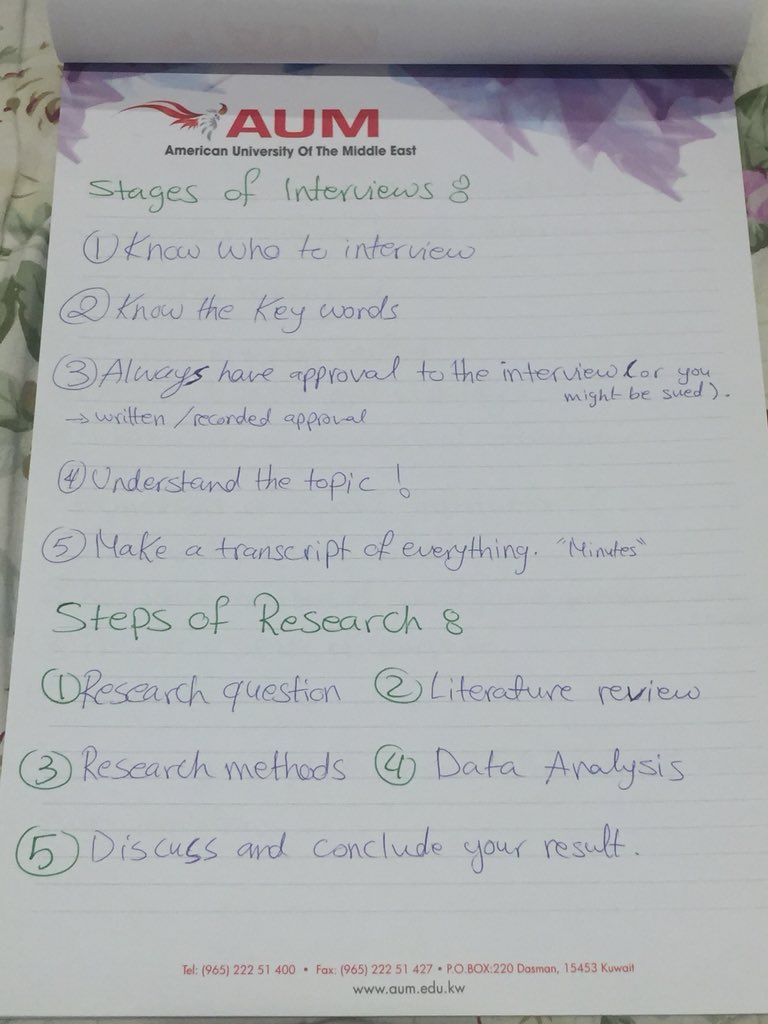 AUM
American University Of The Middle East
Stages of Interviews :
① Know who to interview
② Know the Key words
③ Always have approval to the interview (or you
might be sued).
→ written / recorded approval
④ Understand the topic !
⑤ Make a transcript of everything. "Minutes"
Steps of Research :
① Research question ② Literature review
③ Research methods ④ Data Analysis
⑤ Discuss and conclude your result.
Tel: (965) 222 51 400 • Fax: (965) 222 51 427 • P.O.BOX:220 Dasman, 15453 Kuwait
www.aum.edu.kw